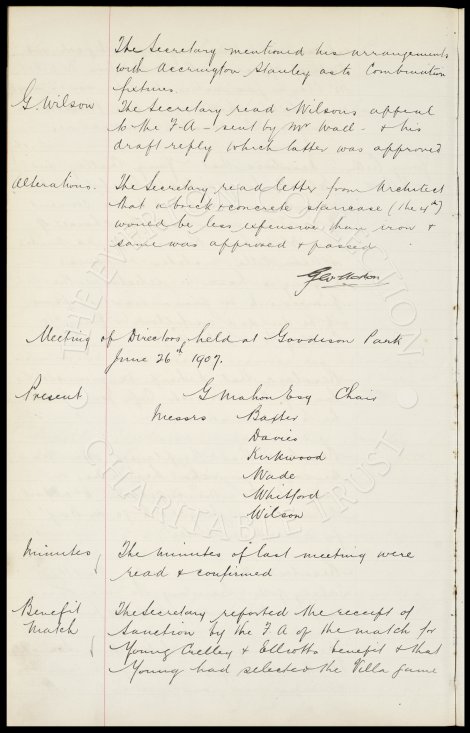 The Secretary mentioned his arrangements
with Accrington Stanley as to Combination
fixtures.
G Wilson
The Secretary read Wilsons appeal
to the F.A - sent by Mr Wad - & his
draft reply which latter was approved
Alterations.
The Secretary read letter from Architect
that a brick & concrete staircase (the 4th)
would be less expensive than iron &
same was approved & passed
Geo Mahon
Meeting of Directors, held at Goodison Park
June 26th 1907.
Present
G Mahon Esq Chair
Messrs Baxter
Davies
Kirkwood
Wade
Whitford
Wilson
Minutes
The minutes of last meeting were
read & confirmed
Benefit
Match
The Secretary reported the receipt of
Sanction by the F.A of the match for
Young Crelley & Elliotts benefit & that
Young had selected the Villa game
THE EVERTON COLLECTION
CHARITABLE TRUST